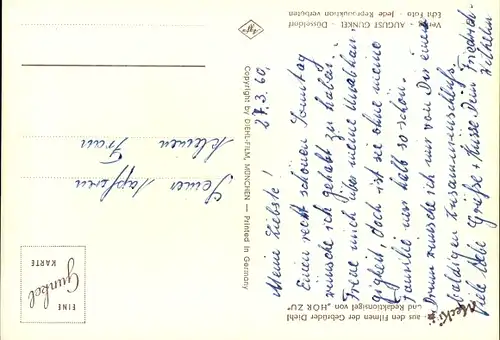 27.3.60.
Meine Liebste!
Einen recht schönen Sonntag
wünsche ich gehabt zu haben.
Freue mich über meine Unabhän-
gigkeit, doch ist sie ohne meine
Familie nur halb so schön.
Drum wünsche ich mir von Dir einen
baldigen Zusammenschluß.
Viele liebe Grüße + Küsse Dein Friedrich-
Wilhelm
Seiner tapferen
kleinen
Frau
Copyright by DIEHL-FILM, MÜNCHEN — Printed in Germany
AUGUST GUNKEL · Düsseldorf
Edit Foto · Jede Reproduktion verboten
Mecki
aus den Filmen der Gebrüder Diehl
und Redaktionsigel von „HÖR ZU"
EINE
Gunkel
KARTE